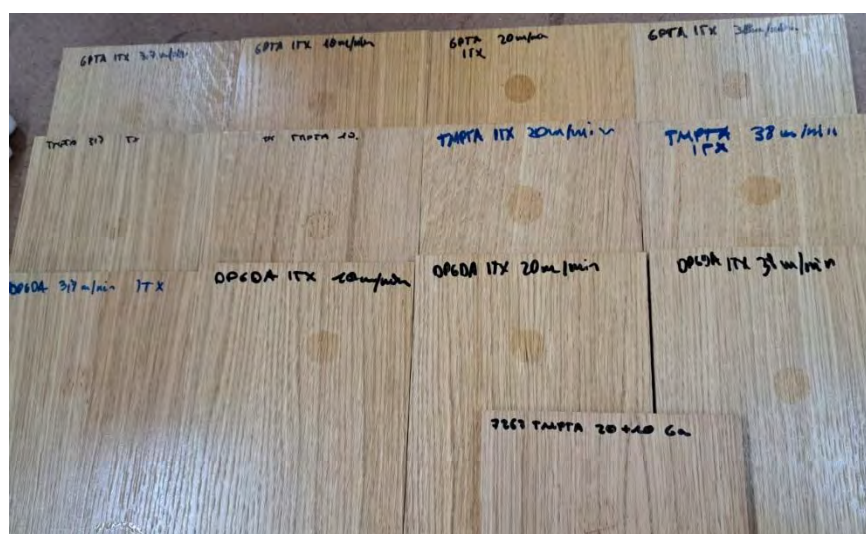 GPTA ITX 3.7 m/min
GPTA ITX 10m/min
GPTA 20m/min
ITX
GPTA ITX 38m/min
TMPTA 3,7
TMPTA 10.
TMPTA ITX 20m/min
TMPTA 38 m/min
ITX
DPGDA 3,7 m/min ITX
DPGDA ITX 10m/min
DPGDA ITX 20m/min
DPGDA ITX 38 m/min
7267 TMPTA 20+10 Ga